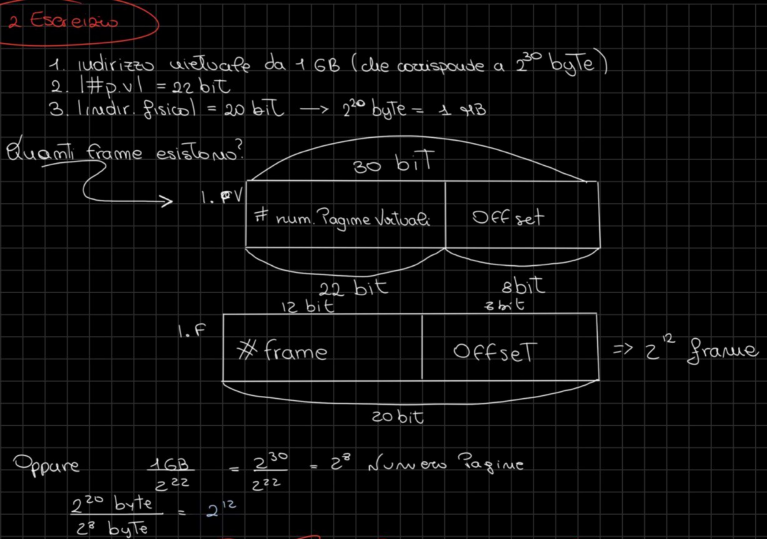 2 Esercizio
1. indirizzo virtuale da 1 GB (che corrisponde a 2^30 byTe)
2. |#p.v| = 22 biT
3. |indir. fisico| = 20 biT → 2^20 byTe = 1 MB
Quanti frame esisTono?
30 biT
1. PV # num. Pagine Virtuali Offset
22 bit 8bit
12 bit 8bit
1. F # frame OffseT => 2^12 frame
20 bit
Oppure 1GB / 2^22 = 2^30 / 2^22 = 2^8 Numero Pagine
2^20 byte / 2^8 byTe = 2^12